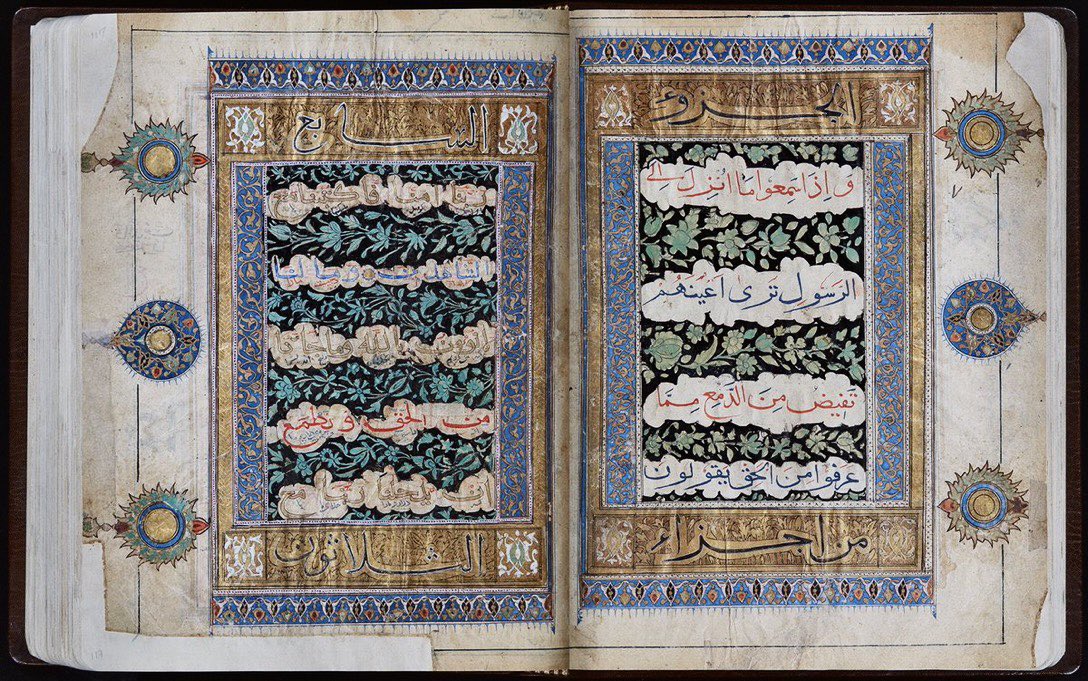 الجزؤ
وإذا سمعوا ما أنزل إلى
الرسول ترى أعينهم
تفيض من الدمع مما
عرفوا من الحق يقولون
من اجزاء
السابع
ربنا امنا فاكتبنا مع
الشاهدين وما لنا
لا نؤمن بالله وما جاءنا
من الحق ونطمع
أن يدخلنا ربنا مع
الثلاثون